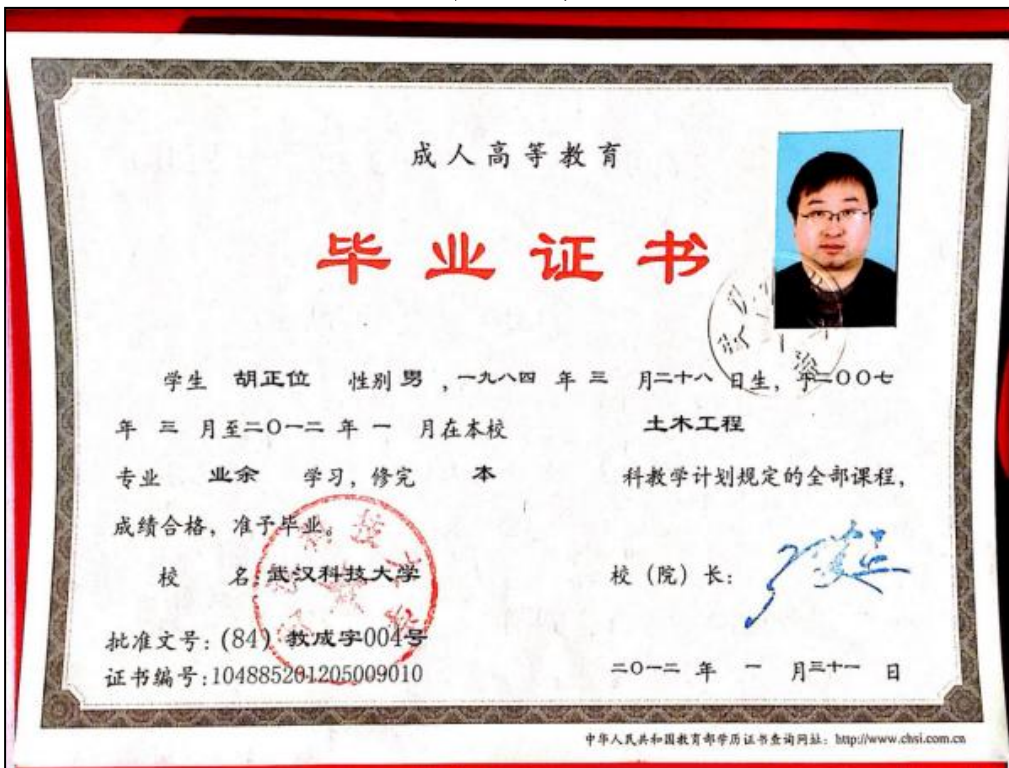 成人高等教育
毕业证书
学生 胡正位 性别 男 ,一九八四 年 三 月二十八 日生, 于二00七
年 三 月至二0一二 年 一 月在本校 土木工程
专业 业余 学习, 修完 本 科教学计划规定的全部课程,
成绩合格, 准予毕业。
校 名:武汉科技大学 校（院）长:
批准文号: (84) 教成字004号
证书编号:104885201205009010 二0一二 年 一 月三十一 日
中华人民共和国教育部学历证书查询网址: http://www.chsi.com.cn